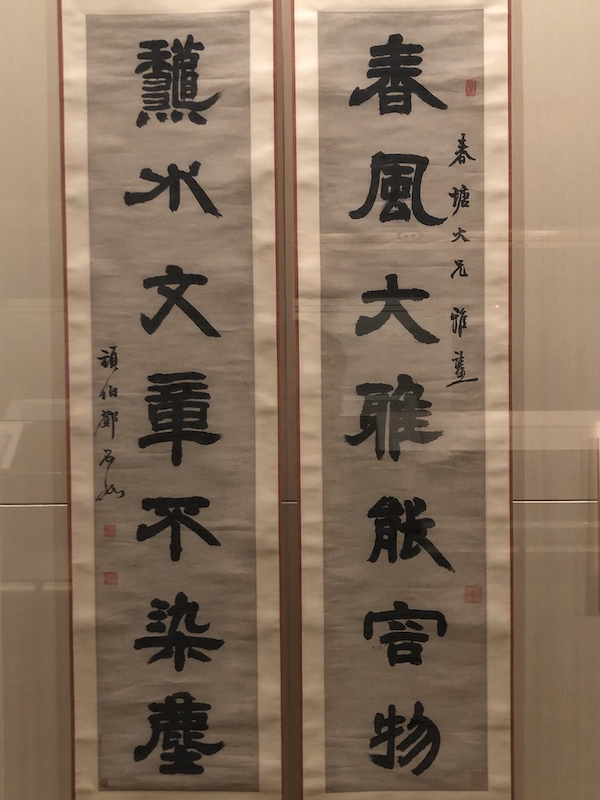 春塘大兄雅鑒
春風大雅能容物
龝水文章不染塵
頑伯鄧石如